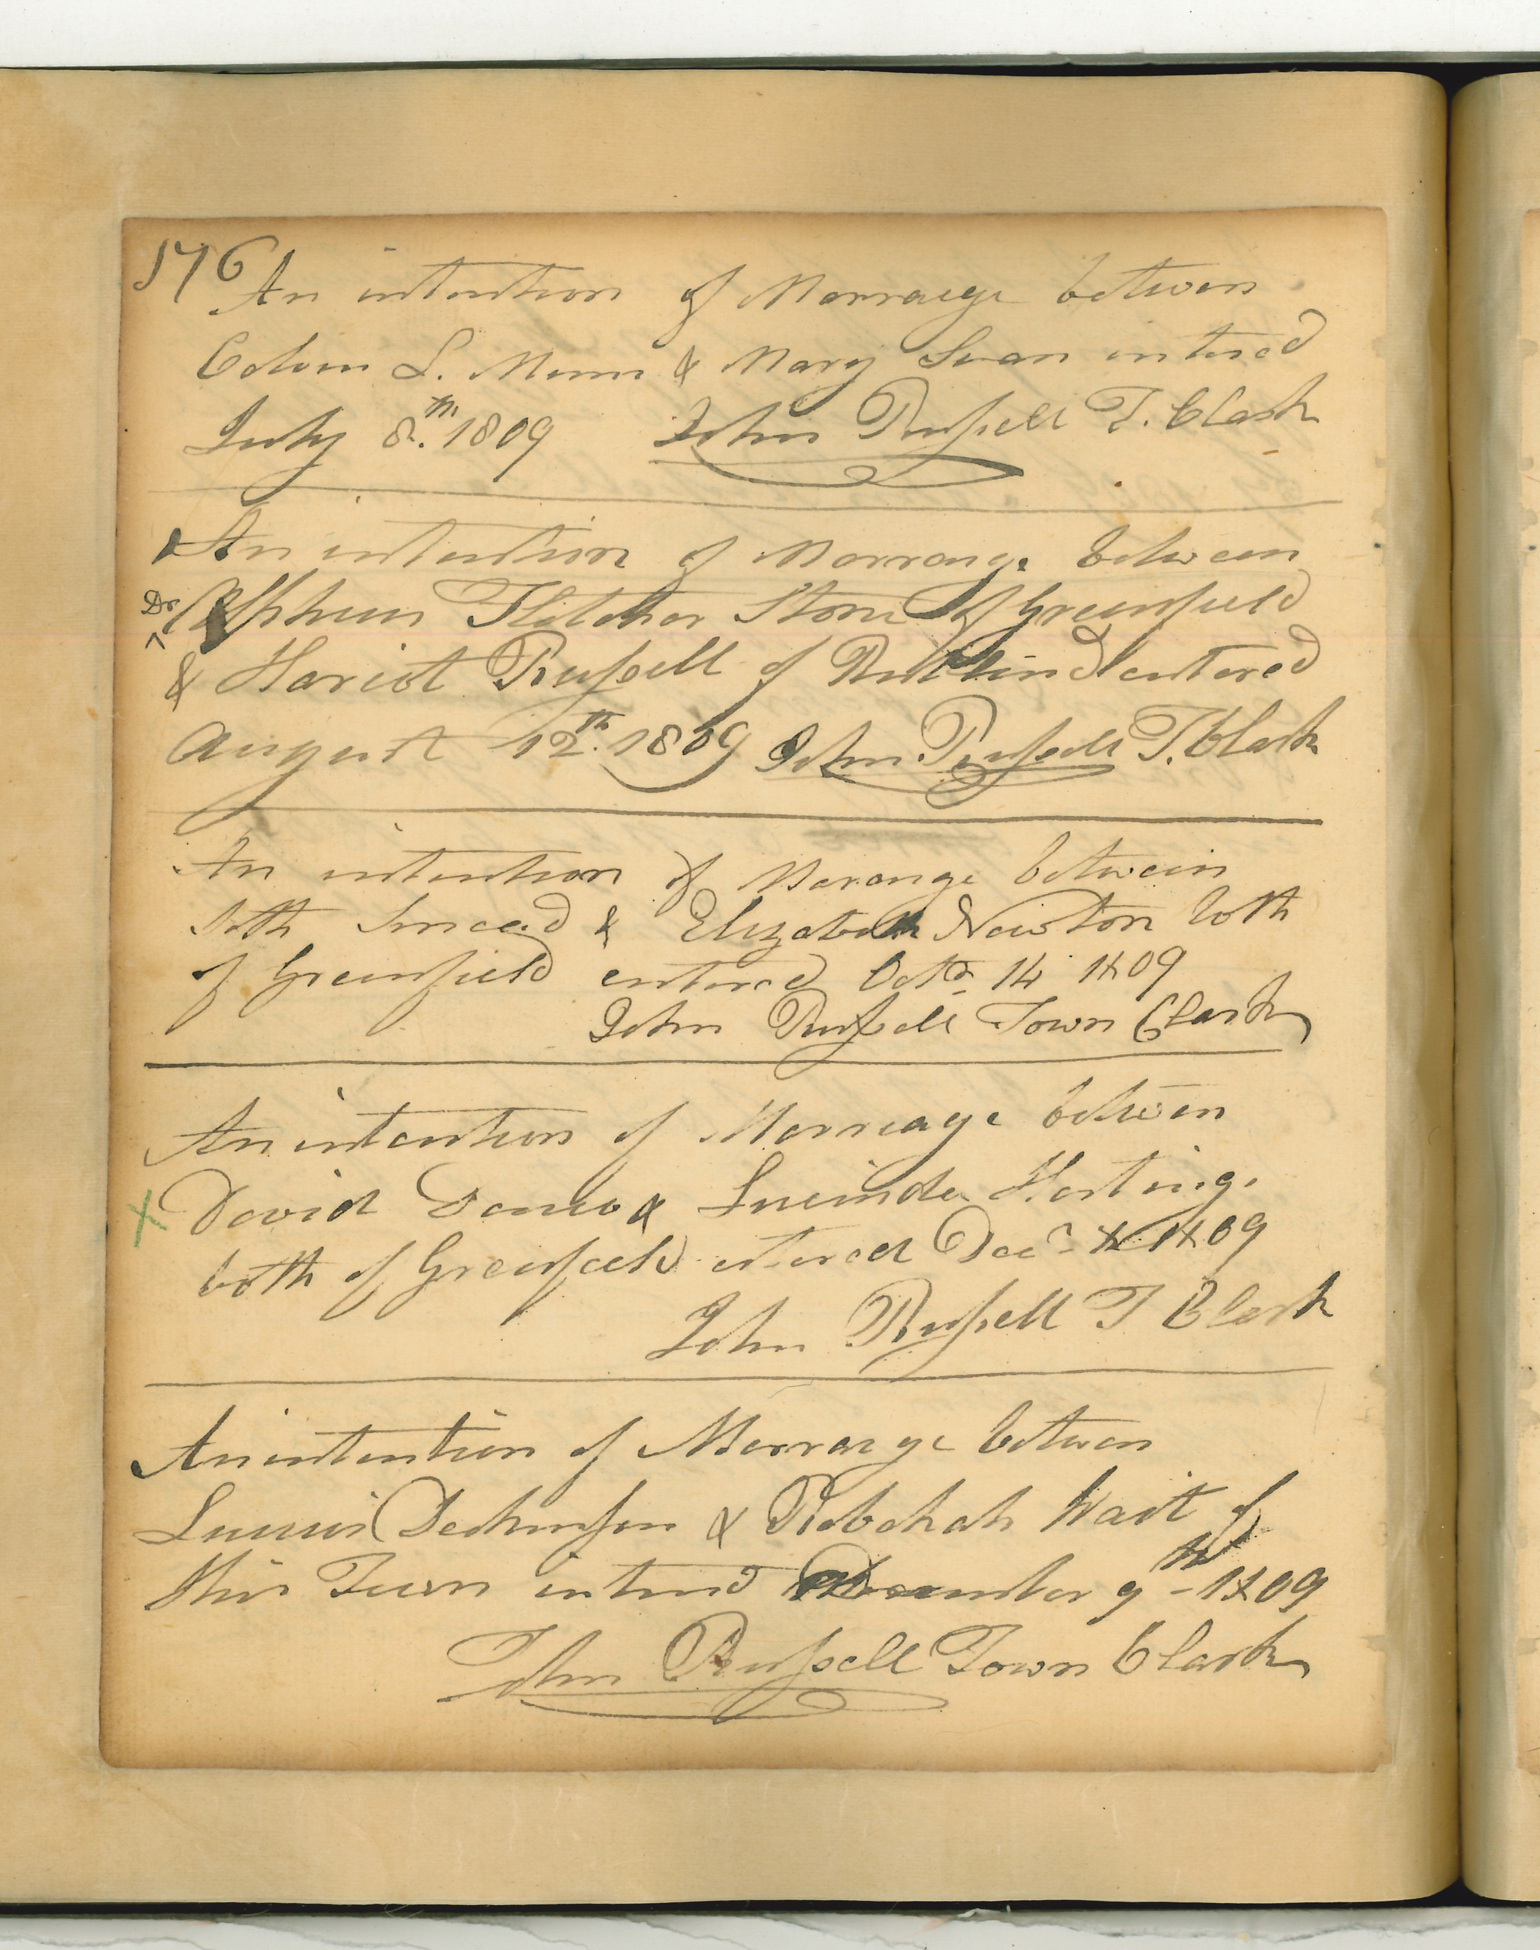 176
An intention of Marraige between
Calvin L. Munn & Mary Swan entered
July 8th. 1809 John Russell T. Clark
An intention of Marraige between
Dr Alpheus Fletcher Stone of Greenfield
& Hariot Russell of Rutland entered
August 12th. 1809 John Russell T. Clark
An intention of Marange between
Seth Smead & Elizabeth Newton both
of Greenfield entered Octr 14 1809
John Russell Town Clark
An intention of Marriage between
David & Lucinda Hastings
both of Greenfield entered Decr 1809
John Russell T Clark
An intention of Marraige between
& Rebekah Wait of
this Town entered December 9th - 1809
John Russell Town Clark